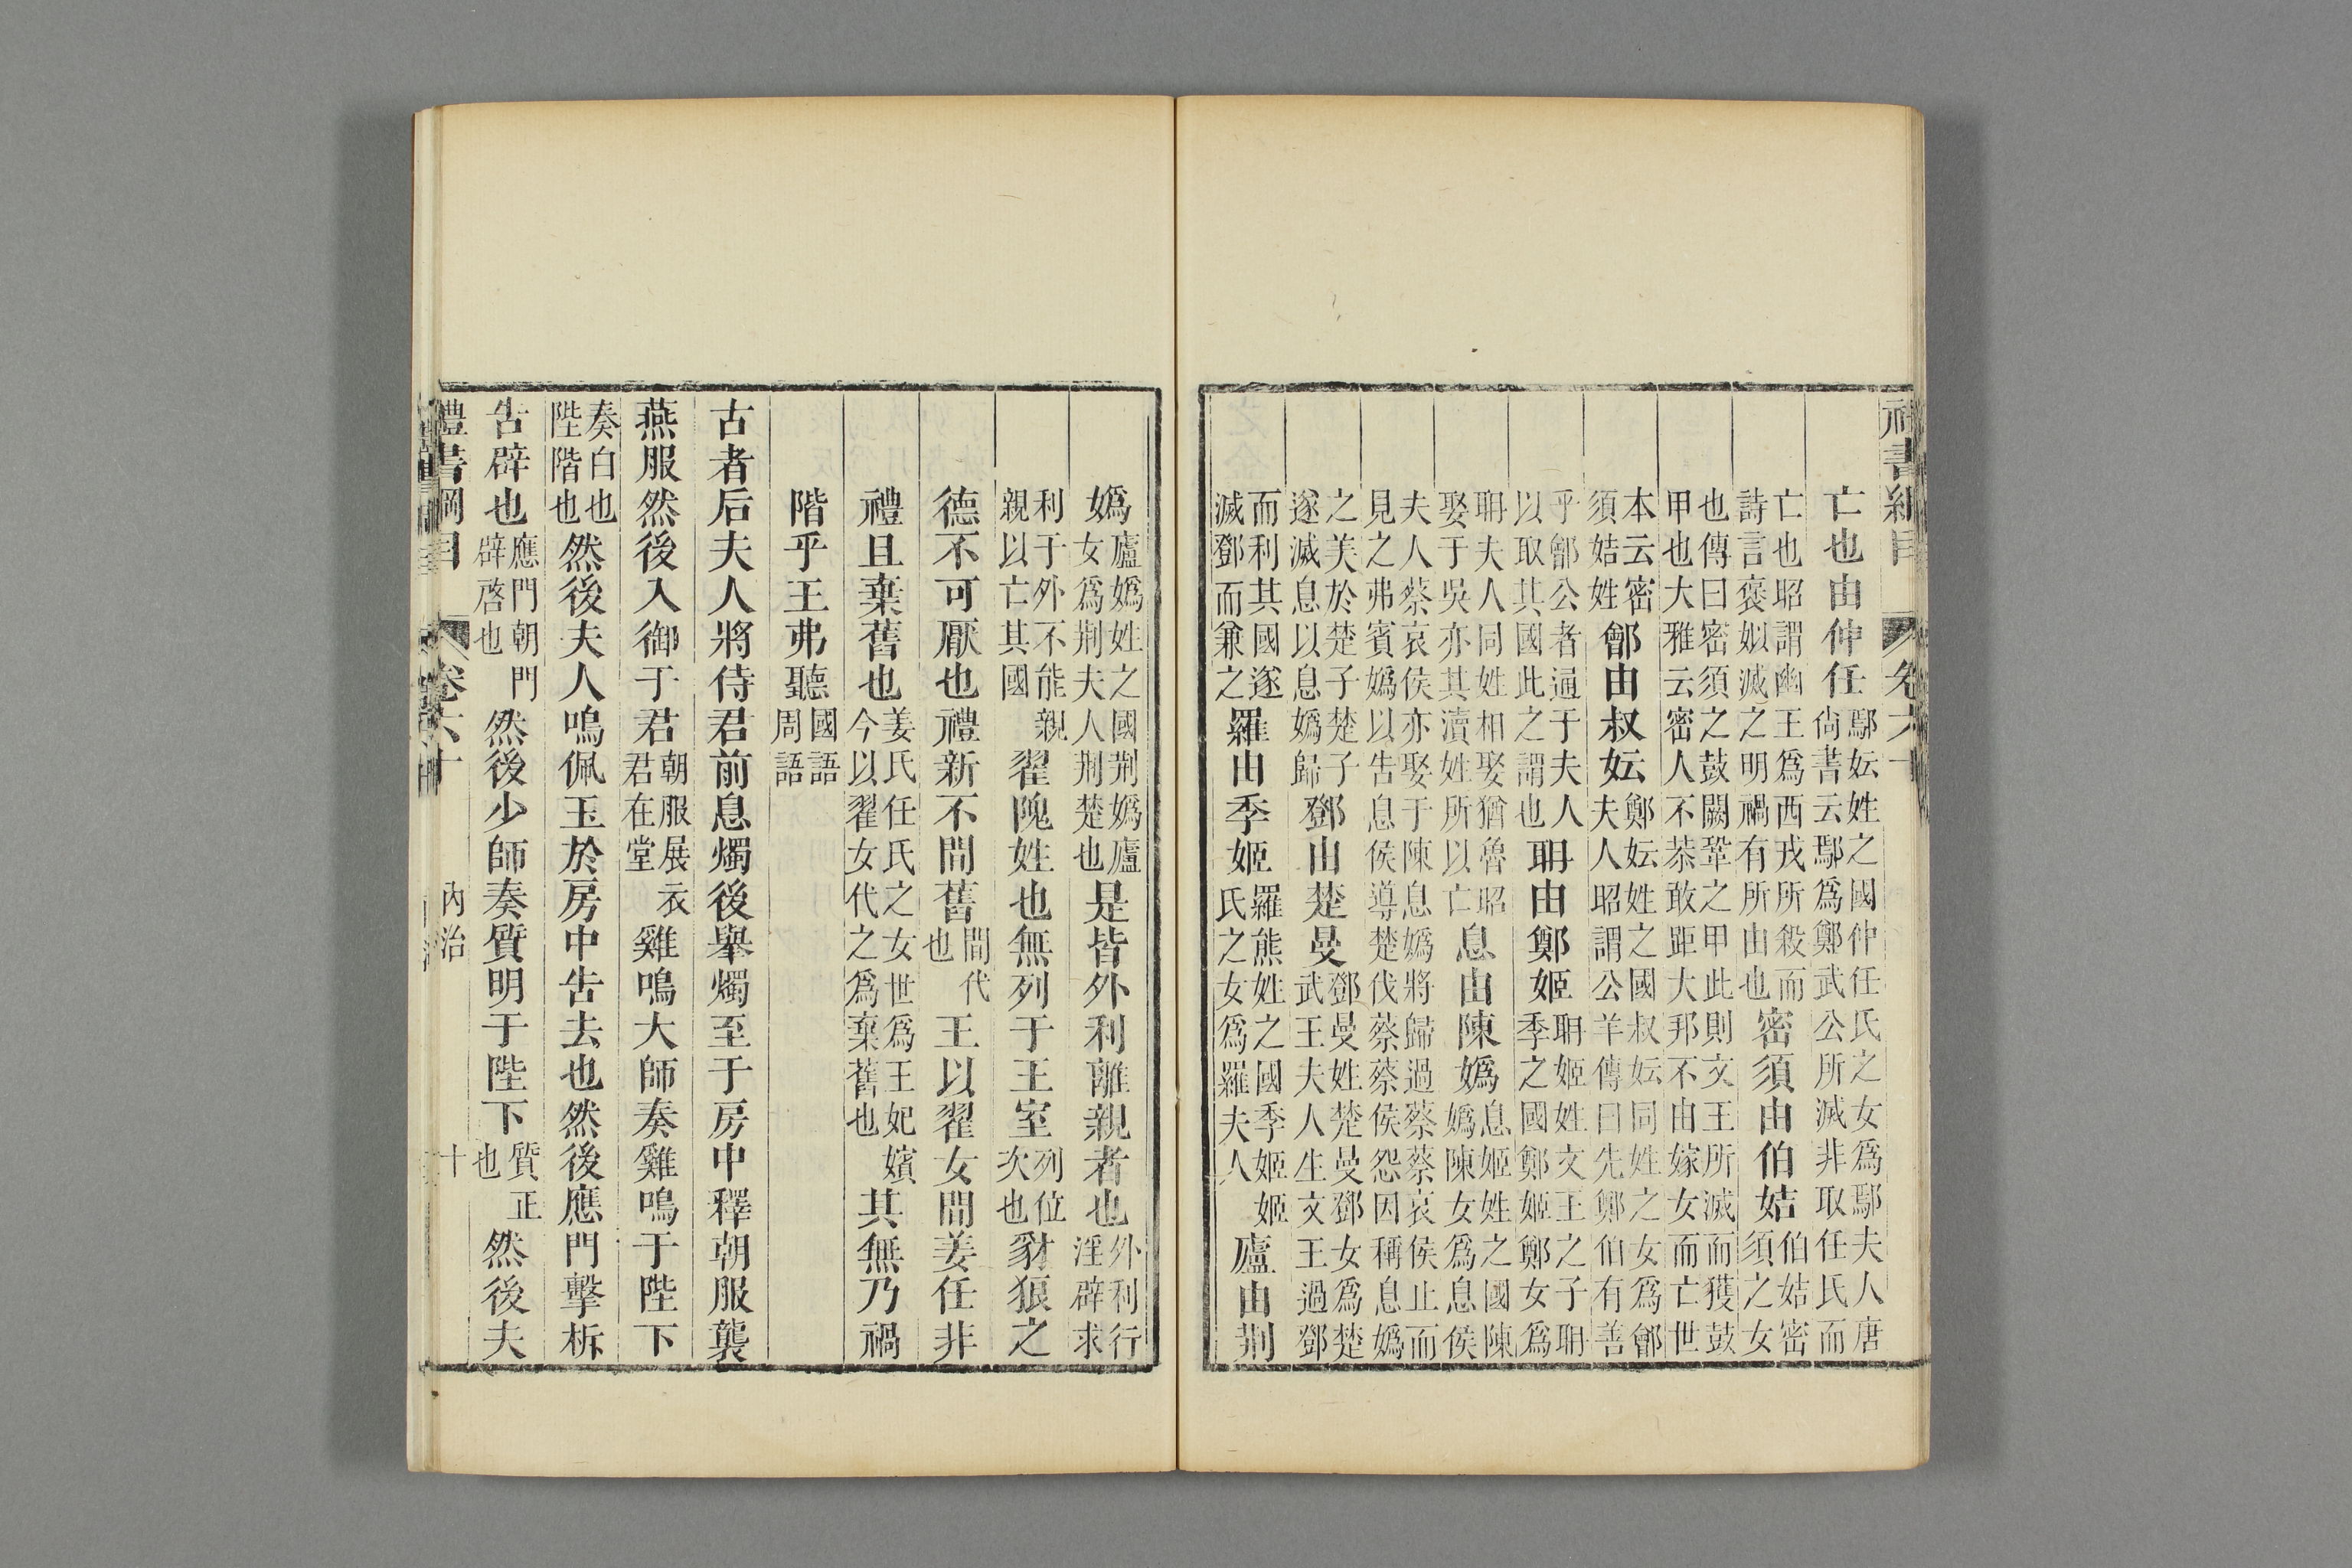 禮書綱目 卷六十
亡也由仲任鄢妘姓之國仲任氏之女爲鄢夫人唐尙書云鄢爲鄭武公所滅非取任氏而
亡也昭謂幽王爲西戎所殺而詩言褒姒滅之明禍有所由也密須由伯姞伯姞密須之女
也傳曰密須之鼓闕鞏之甲此則文王所滅而獲鼓甲也大雅云密人不恭敢距大邦不由嫁女而亡世
本云密須姞姓鄶由叔妘鄭妘姓之國叔妘同姓之女爲鄶夫人昭謂公羊傳曰先鄭伯有善
乎鄶公者通于夫人以取其國此之謂也聃由鄭姬聃姬姓文王之子聃季之國鄭姬鄭女爲
聃夫人同姓相娶猶魯昭娶于吳亦其瀆姓所以亡息由陳嬀息姬姓之國陳嬀陳女爲息侯
夫人蔡哀侯亦娶于陳息嬀將歸過蔡蔡哀侯止而見之弗賓嬀以告息侯導楚伐蔡蔡侯怨因稱息嬀
之美於楚子楚子遂滅息以息嬀歸鄧由楚曼鄧曼姓楚曼鄧女爲楚武王夫人生文王過鄧
而利其國遂滅鄧而兼之羅由季姬羅熊姓之國季姬姬氏之女爲羅夫人廬由荆
嬀廬嬀姓之國荆嬀廬女爲荆夫人荆楚也是皆外利離親者也外利行淫辟求
利于外不能親親以亡其國翟隗姓也無列于王室列位次也豺狼之
德不可厭也禮新不閒舊閒代也王以翟女閒姜任非
禮且棄舊也姜氏任氏之女世爲王妃嬪今以翟女代之爲棄舊也其無乃禍
階乎王弗聽國語周語
古者后夫人將侍君前息燭後舉燭至于房中釋朝服襲
燕服然後入御于君朝服展衣君在堂雞鳴大師奏雞鳴于陛下
奏白也陛階也然後夫人鳴佩玉於房中告去也然後應門擊柝
告辟也應門朝門辟啓也然後少師奏質明于陛下質正也然後夫
禮書綱目 卷六十 內治 十